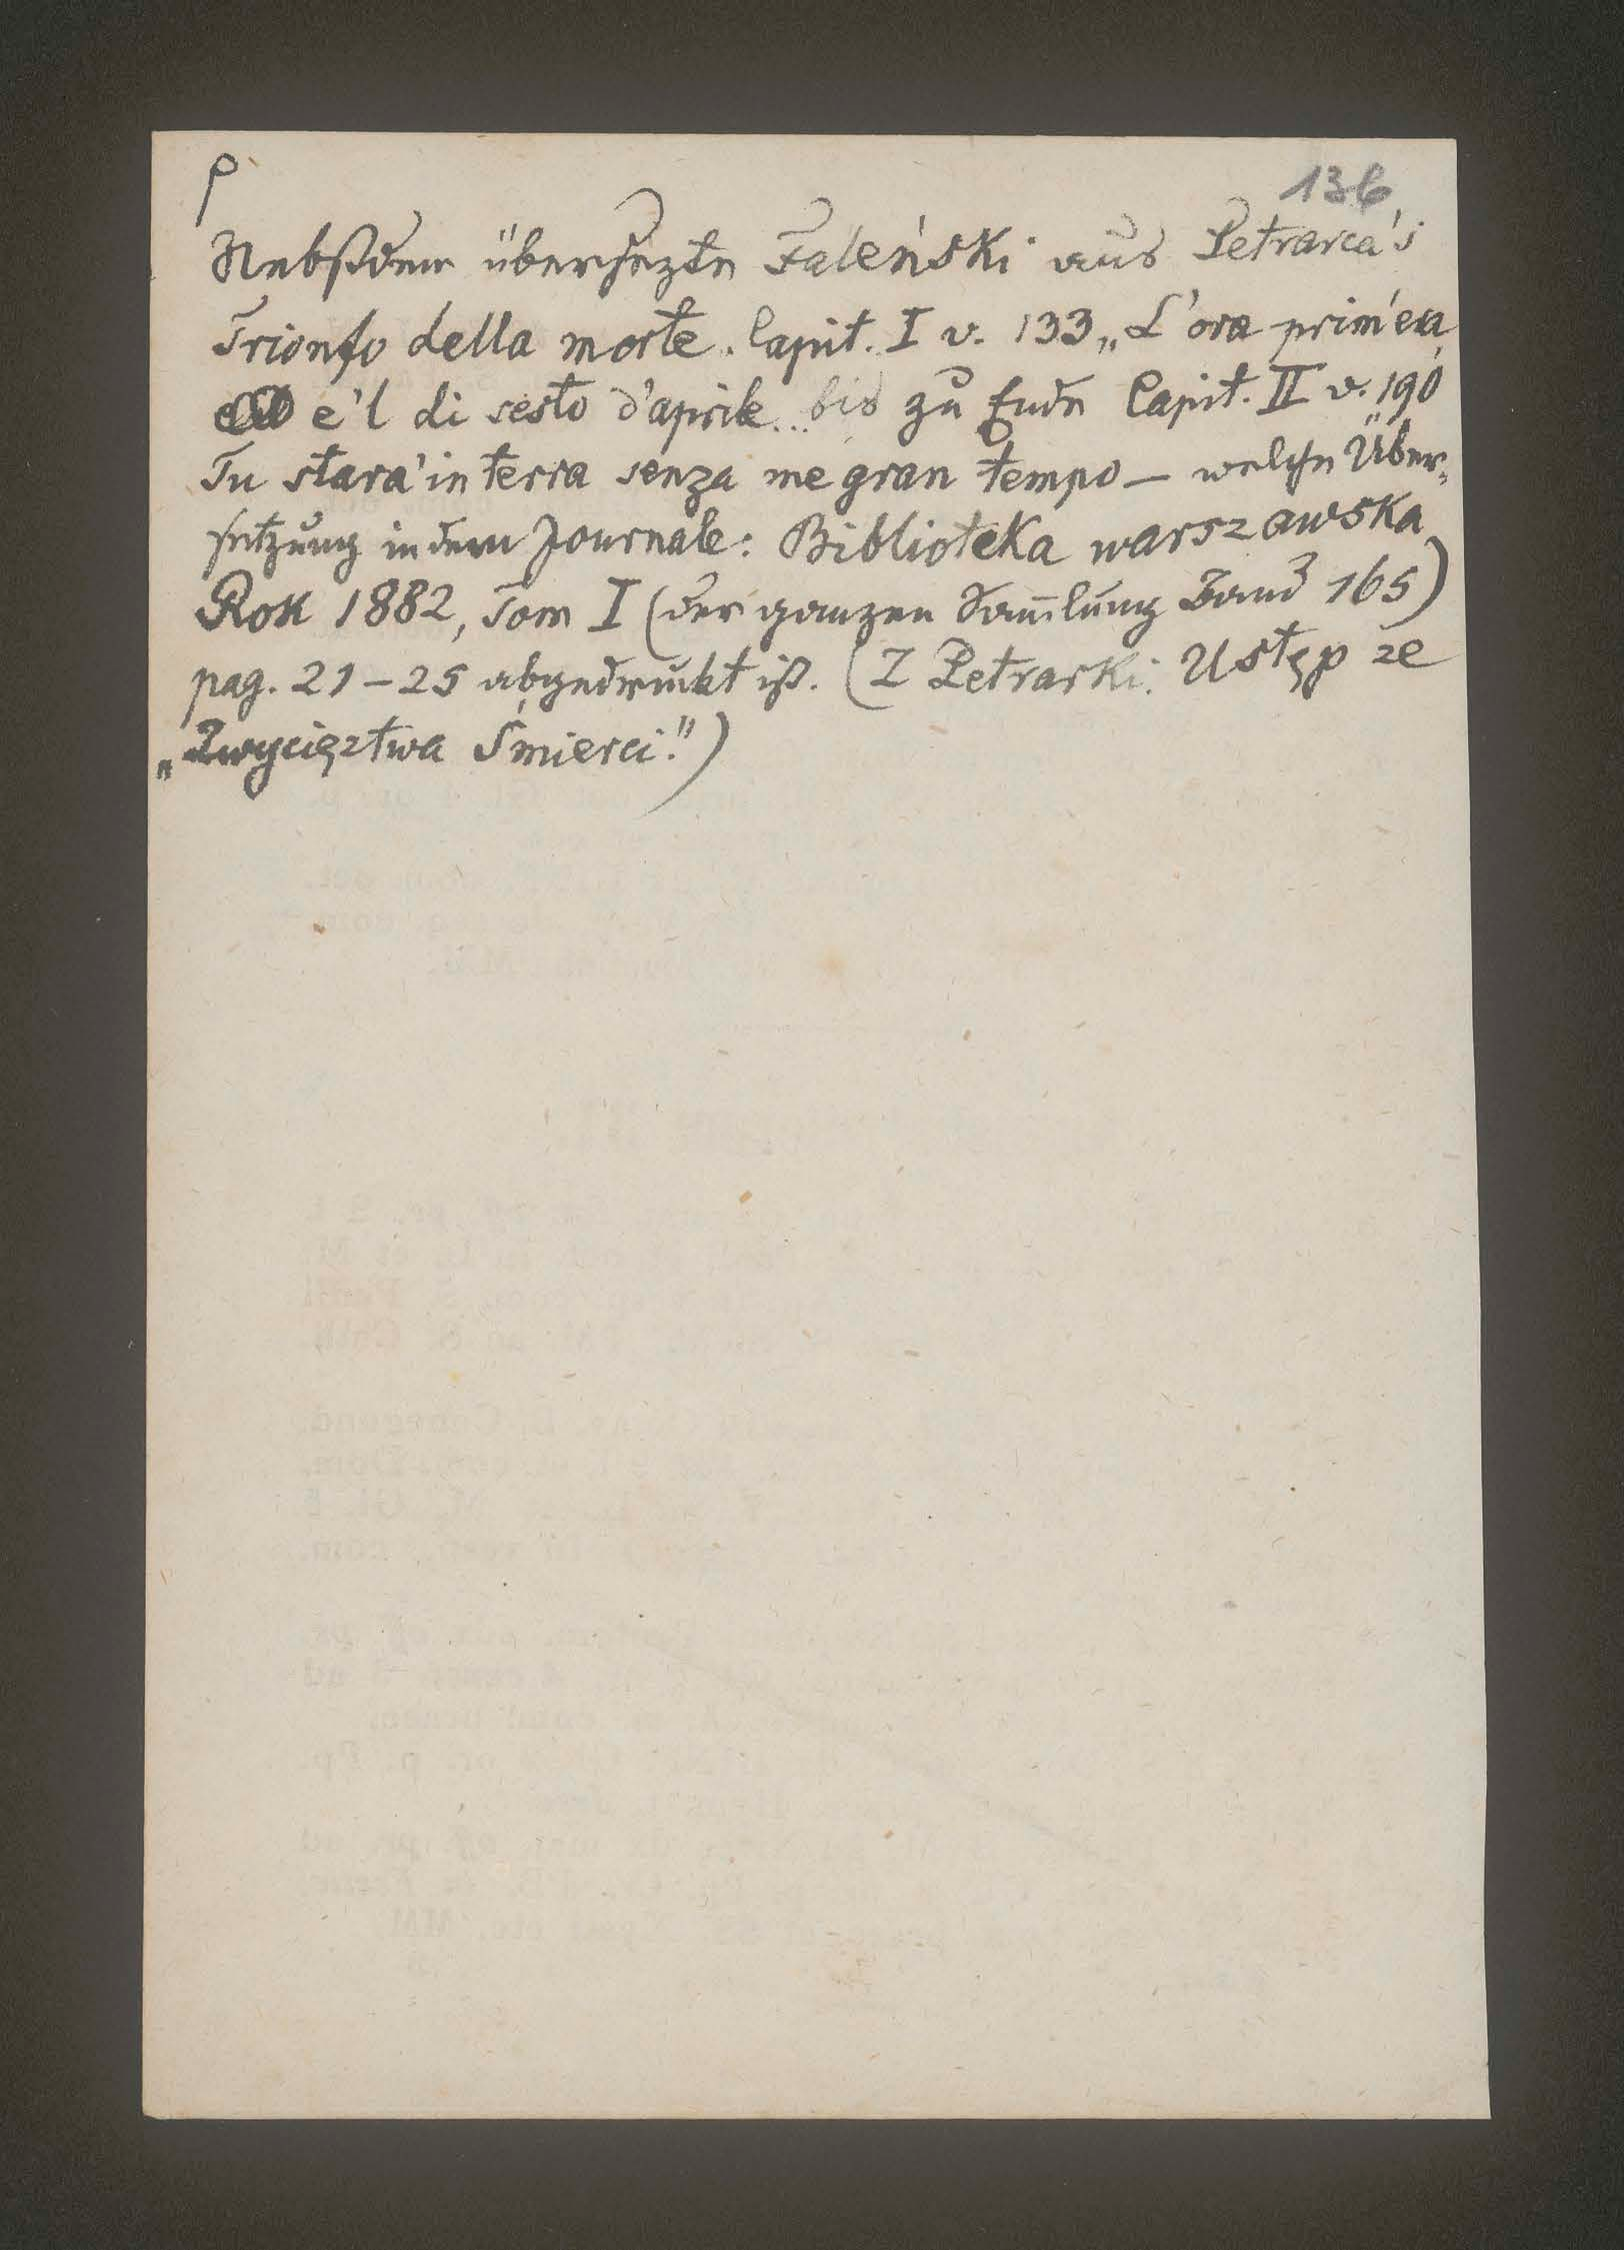 136
Nebstdem übersezte Faleński aus Petrarca's
Trionfo della morte. Capit. I v. 133 „L'ora prim'era,
e'l di sesto d'aprile... bis zu Ende Capit. II v. 190
Tu stara' in terra senza me gran tempo – welche Über-
setzung in dem Journale: Biblioteka warszawska
Rok 1882, Tom I (der ganzen Sam̄lung Band 165)
pag. 21–25 abgedruckt ist. (Z Petrarki. Ustęp ze
„Zwycięztwa Śmierci.")